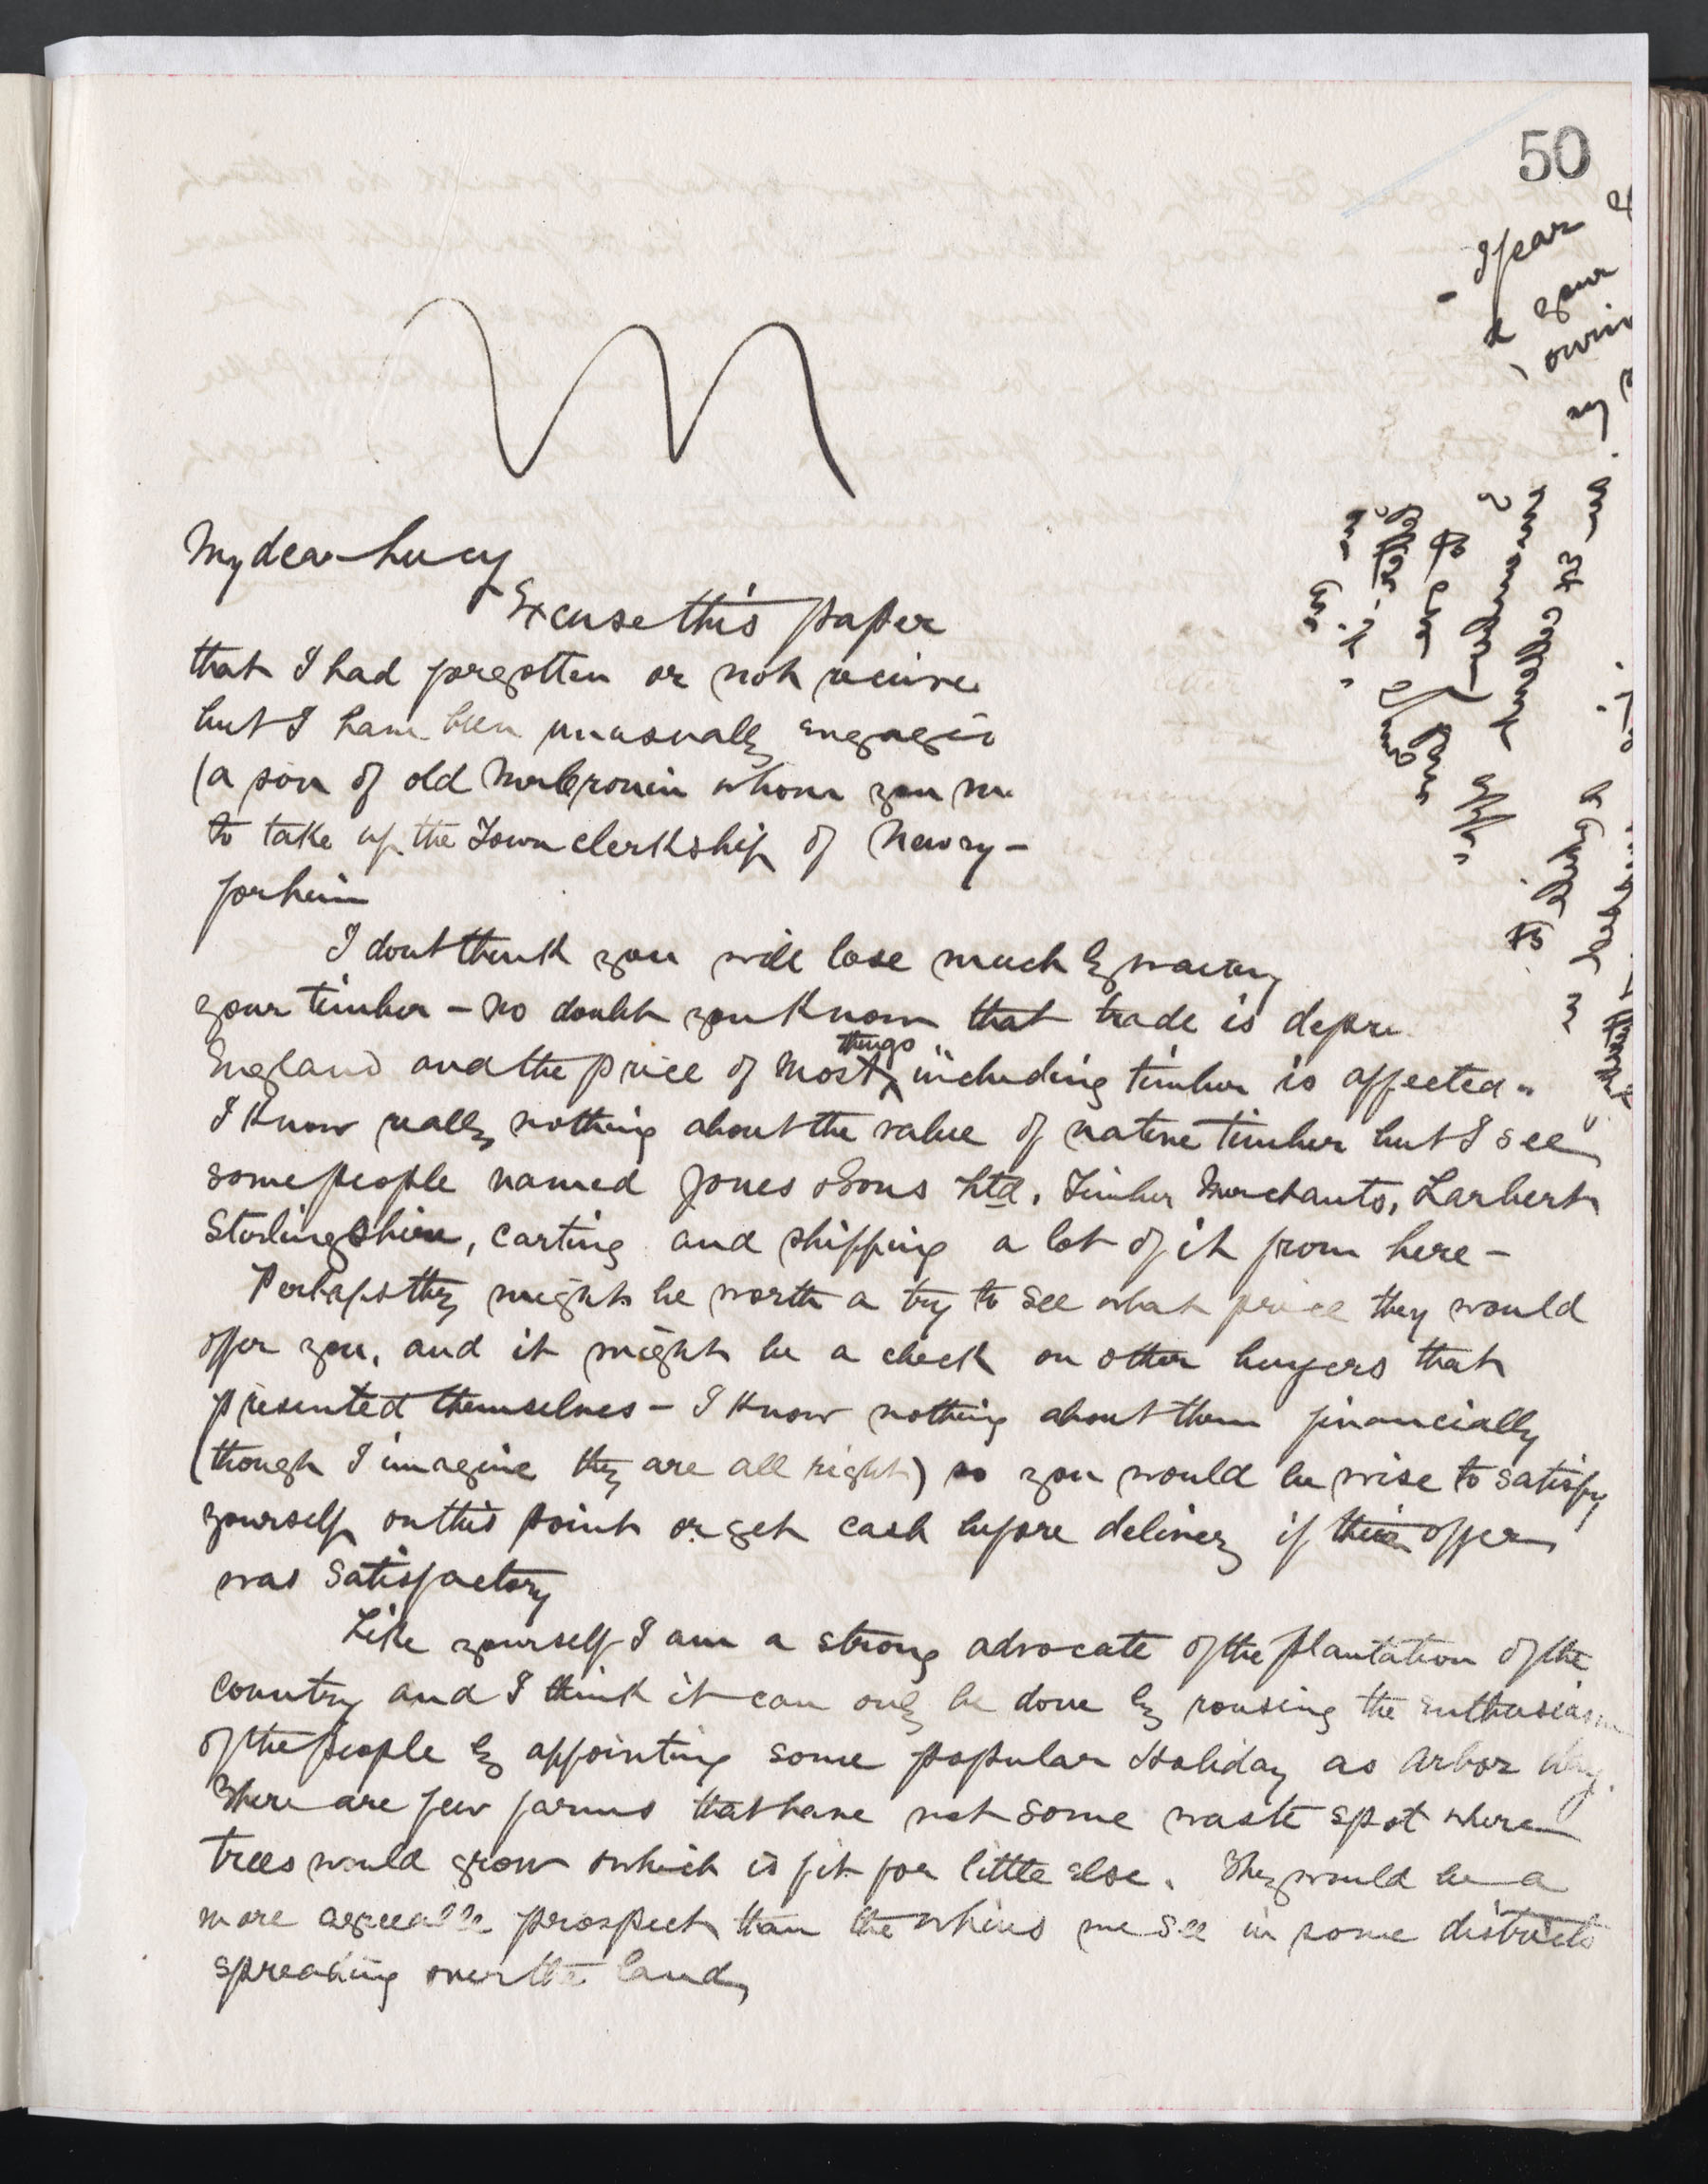 50
My dear Lucy
Excuse this paper
that I had forgotten or not
but I have been unusually engaged
(a son of old whom you
to take up the Town clerkship of Newry -
for him
I dont think you will lose much by
your timber - No doubt you know that trade is
England and the price of most things including timber is affected -
I know really nothing about the value of native timber but I see
some people named Jones & Sons Ltd, Timber Merchants, Larbert
Stirlingshire, carting and shipping a lot of it from here -
Perhaps they might be worth a try to see what price they would
offer you, and it might be a check on other buyers that
presented themselves - I know nothing about them financially
(though I imagine they are all right) so you would be wise to satisfy
yourself on this point or get cash before delivery if their offer
was satisfactory
Like yourself I am a strong advocate of the plantation of the
country and I think it can only be done by rousing the enthusiasm
of the people by appointing some popular Holiday as Arbor day.
There are few farms that have not some waste spot where
trees would grow which is fit for little else. They would be a
more agreeable prospect than the whins we see in some districts
spreading over the land,
- I fear
your